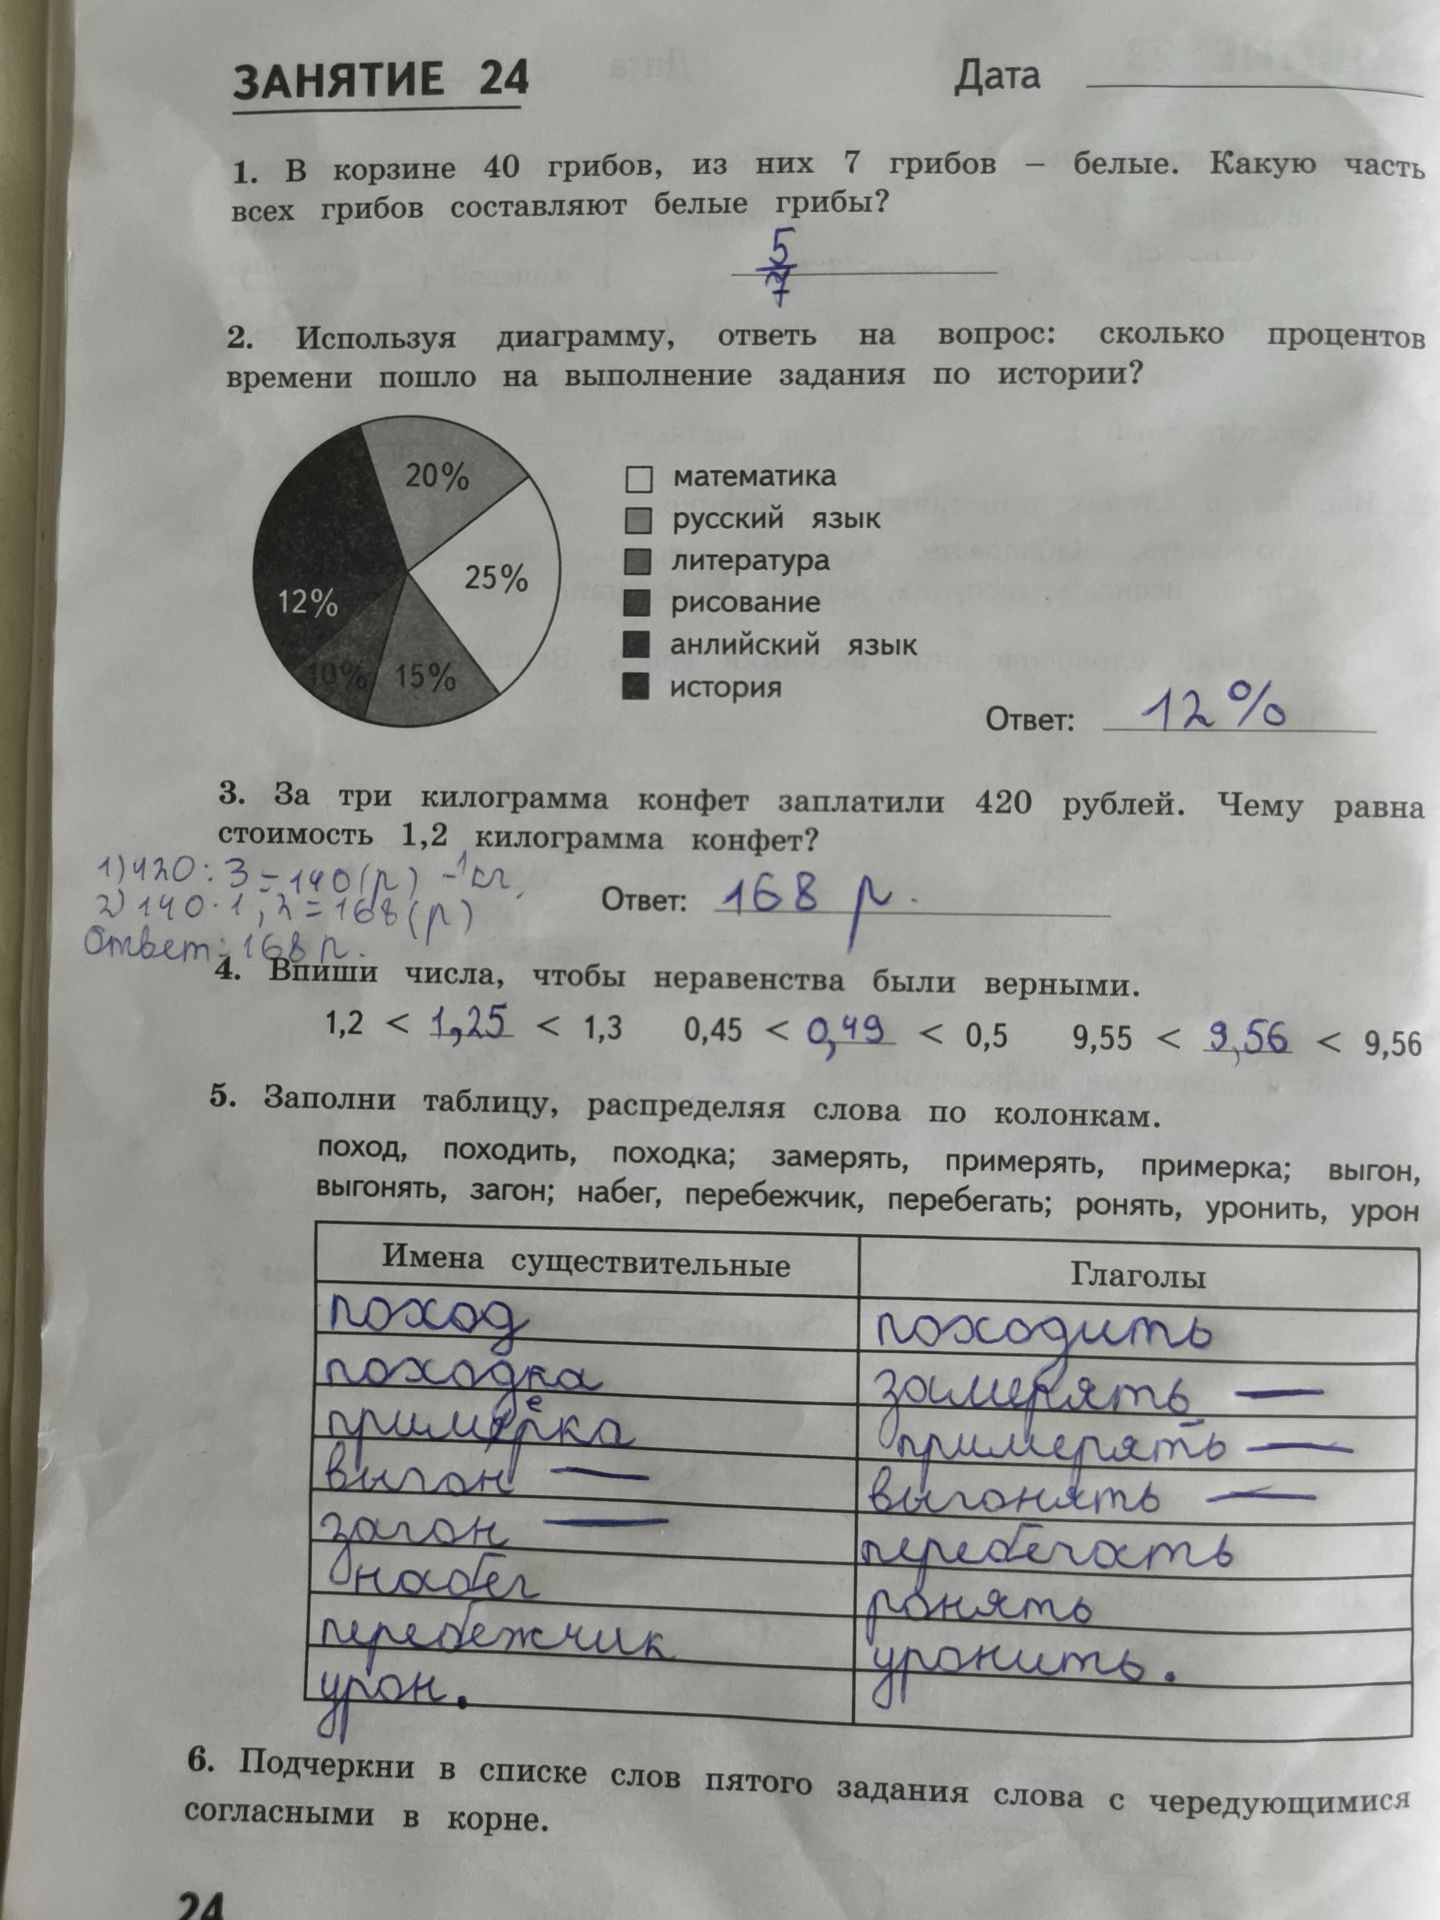 ЗАНЯТИЕ 24
Дата
1. В корзине 40 грибов, из них 7 грибов – белые. Какую часть
всех грибов составляют белые грибы?
5/7
2. Используя диаграмму, ответь на вопрос: сколько процентов
времени пошло на выполнение задания по истории?
20%
25%
12%
10%
15%
математика
русский язык
литература
рисование
анлийский язык
история
Ответ: 12%
3. За три килограмма конфет заплатили 420 рублей. Чему равна
стоимость 1,2 килограмма конфет?
1) 420 : 3 = 140 (р) - 1 кг.
2) 140 · 1,2 = 168 (р)
Ответ: 168 р.
Ответ: 168 р.
4. Впиши числа, чтобы неравенства были верными.
1,2 < 1,25 < 1,3 0,45 < 0,49 < 0,5 9,55 < 9,56 < 9,56
5. Заполни таблицу, распределяя слова по колонкам.
поход, походить, походка; замерять, примерять, примерка; выгон,
выгонять, загон; набег, перебежчик, перебегать; ронять, уронить, урон
Имена существительные Глаголы
поход походить
походка замерять —
примерка примерять —
выгон — выгонять —
загон — перебегать
набег ронять
перебежчик уронить.
урон.
6. Подчеркни в списке слов пятого задания слова с чередующимися
согласными в корне.
24